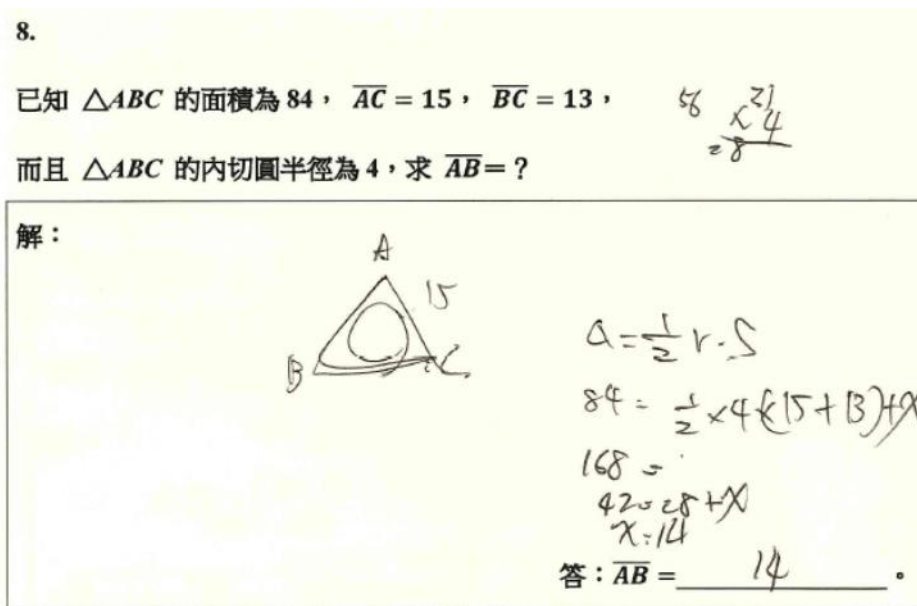 8.
已知 △ABC 的面積為 84， AC = 15， BC = 13，
而且 △ABC 的內切圓半徑為 4，求 AB = ?
56
21
×4
=8
解：
A
15
B
C
a = 1/2 r·S
84 = 1/2 ×4×(15+13)+x
168 =
42=28+x
x=14
答：AB = 14 。